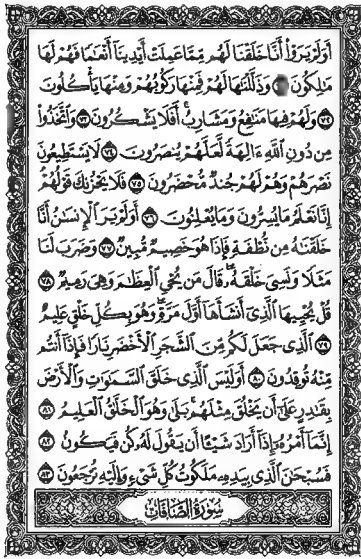 أَوَلَمْ يَرَوْا أَنَّا خَلَقْنَا لَهُم مِّمَّا عَمِلَتْ أَيْدِينَا أَنْعَٰمًا فَهُمْ لَهَا
مَٰلِكُونَ وَذَلَّلْنَٰهَا لَهُمْ فَمِنْهَا رَكُوبُهُمْ وَمِنْهَا يَأْكُلُونَ
٧٢ وَلَهُمْ فِيهَا مَنَٰفِعُ وَمَشَارِبُ ۖ أَفَلَا يَشْكُرُونَ ٧٣ وَاتَّخَذُوا
مِن دُونِ اللَّهِ ءَالِهَةً لَّعَلَّهُمْ يُنصَرُونَ ٧٤ لَا يَسْتَطِيعُونَ
نَصْرَهُمْ وَهُمْ لَهُمْ جُندٌ مُّحْضَرُونَ ٧٥ فَلَا يَحْزُنكَ قَوْلُهُمْ ۘ
إِنَّا نَعْلَمُ مَا يُسِرُّونَ وَمَا يُعْلِنُونَ ٧٦ أَوَلَمْ يَرَ الْإِنسَٰنُ أَنَّا
خَلَقْنَٰهُ مِن نُّطْفَةٍ فَإِذَا هُوَ خَصِيمٌ مُّبِينٌ ٧٧ وَضَرَبَ لَنَا
مَثَلًا وَنَسِيَ خَلْقَهُ ۖ قَالَ مَن يُحْيِ الْعِظَٰمَ وَهِيَ رَمِيمٌ ٧٨
قُلْ يُحْيِيهَا الَّذِي أَنشَأَهَا أَوَّلَ مَرَّةٍ ۖ وَهُوَ بِكُلِّ خَلْقٍ عَلِيمٌ
٧٩ الَّذِي جَعَلَ لَكُم مِّنَ الشَّجَرِ الْأَخْضَرِ نَارًا فَإِذَا أَنتُم
مِّنْهُ تُوقِدُونَ ٨٠ أَوَلَيْسَ الَّذِي خَلَقَ السَّمَٰوَٰتِ وَالْأَرْضَ
بِقَٰدِرٍ عَلَىٰ أَن يَخْلُقَ مِثْلَهُم ۚ بَلَىٰ وَهُوَ الْخَلَّٰقُ الْعَلِيمُ ٨١
إِنَّمَا أَمْرُهُ إِذَا أَرَادَ شَيْئًا أَن يَقُولَ لَهُ كُن فَيَكُونُ ٨٢
فَسُبْحَٰنَ الَّذِي بِيَدِهِ مَلَكُوتُ كُلِّ شَيْءٍ وَإِلَيْهِ تُرْجَعُونَ ٨٣
سُورَةُ الصَّافَّاتِ